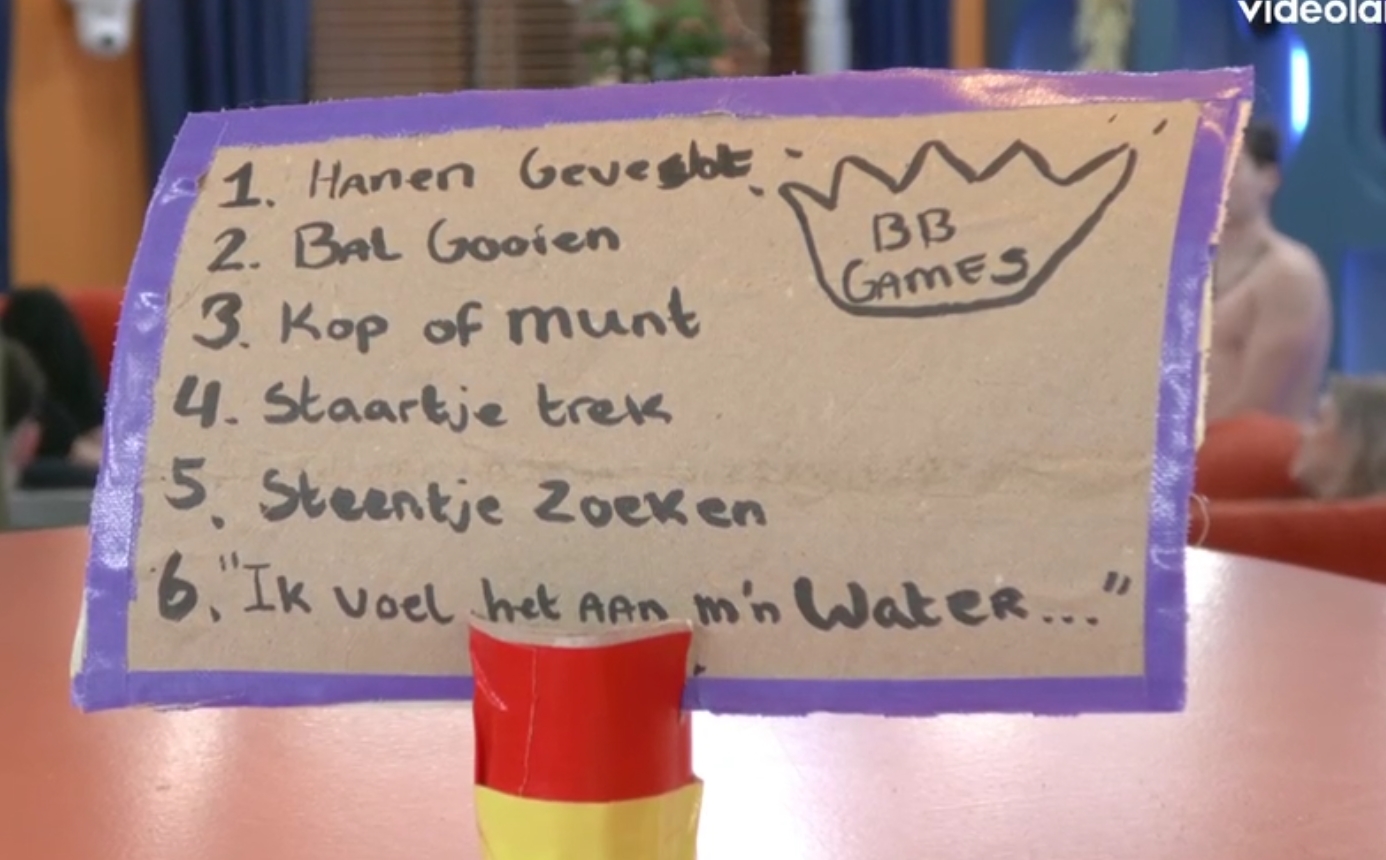 videola
1. Hanen Gevecht
2. Bal Gooien
3. Kop of munt
4. Staartje trek
5. Steentje Zoeken
6. "Ik voel het AAn m'n Water..."
BB
GAMES